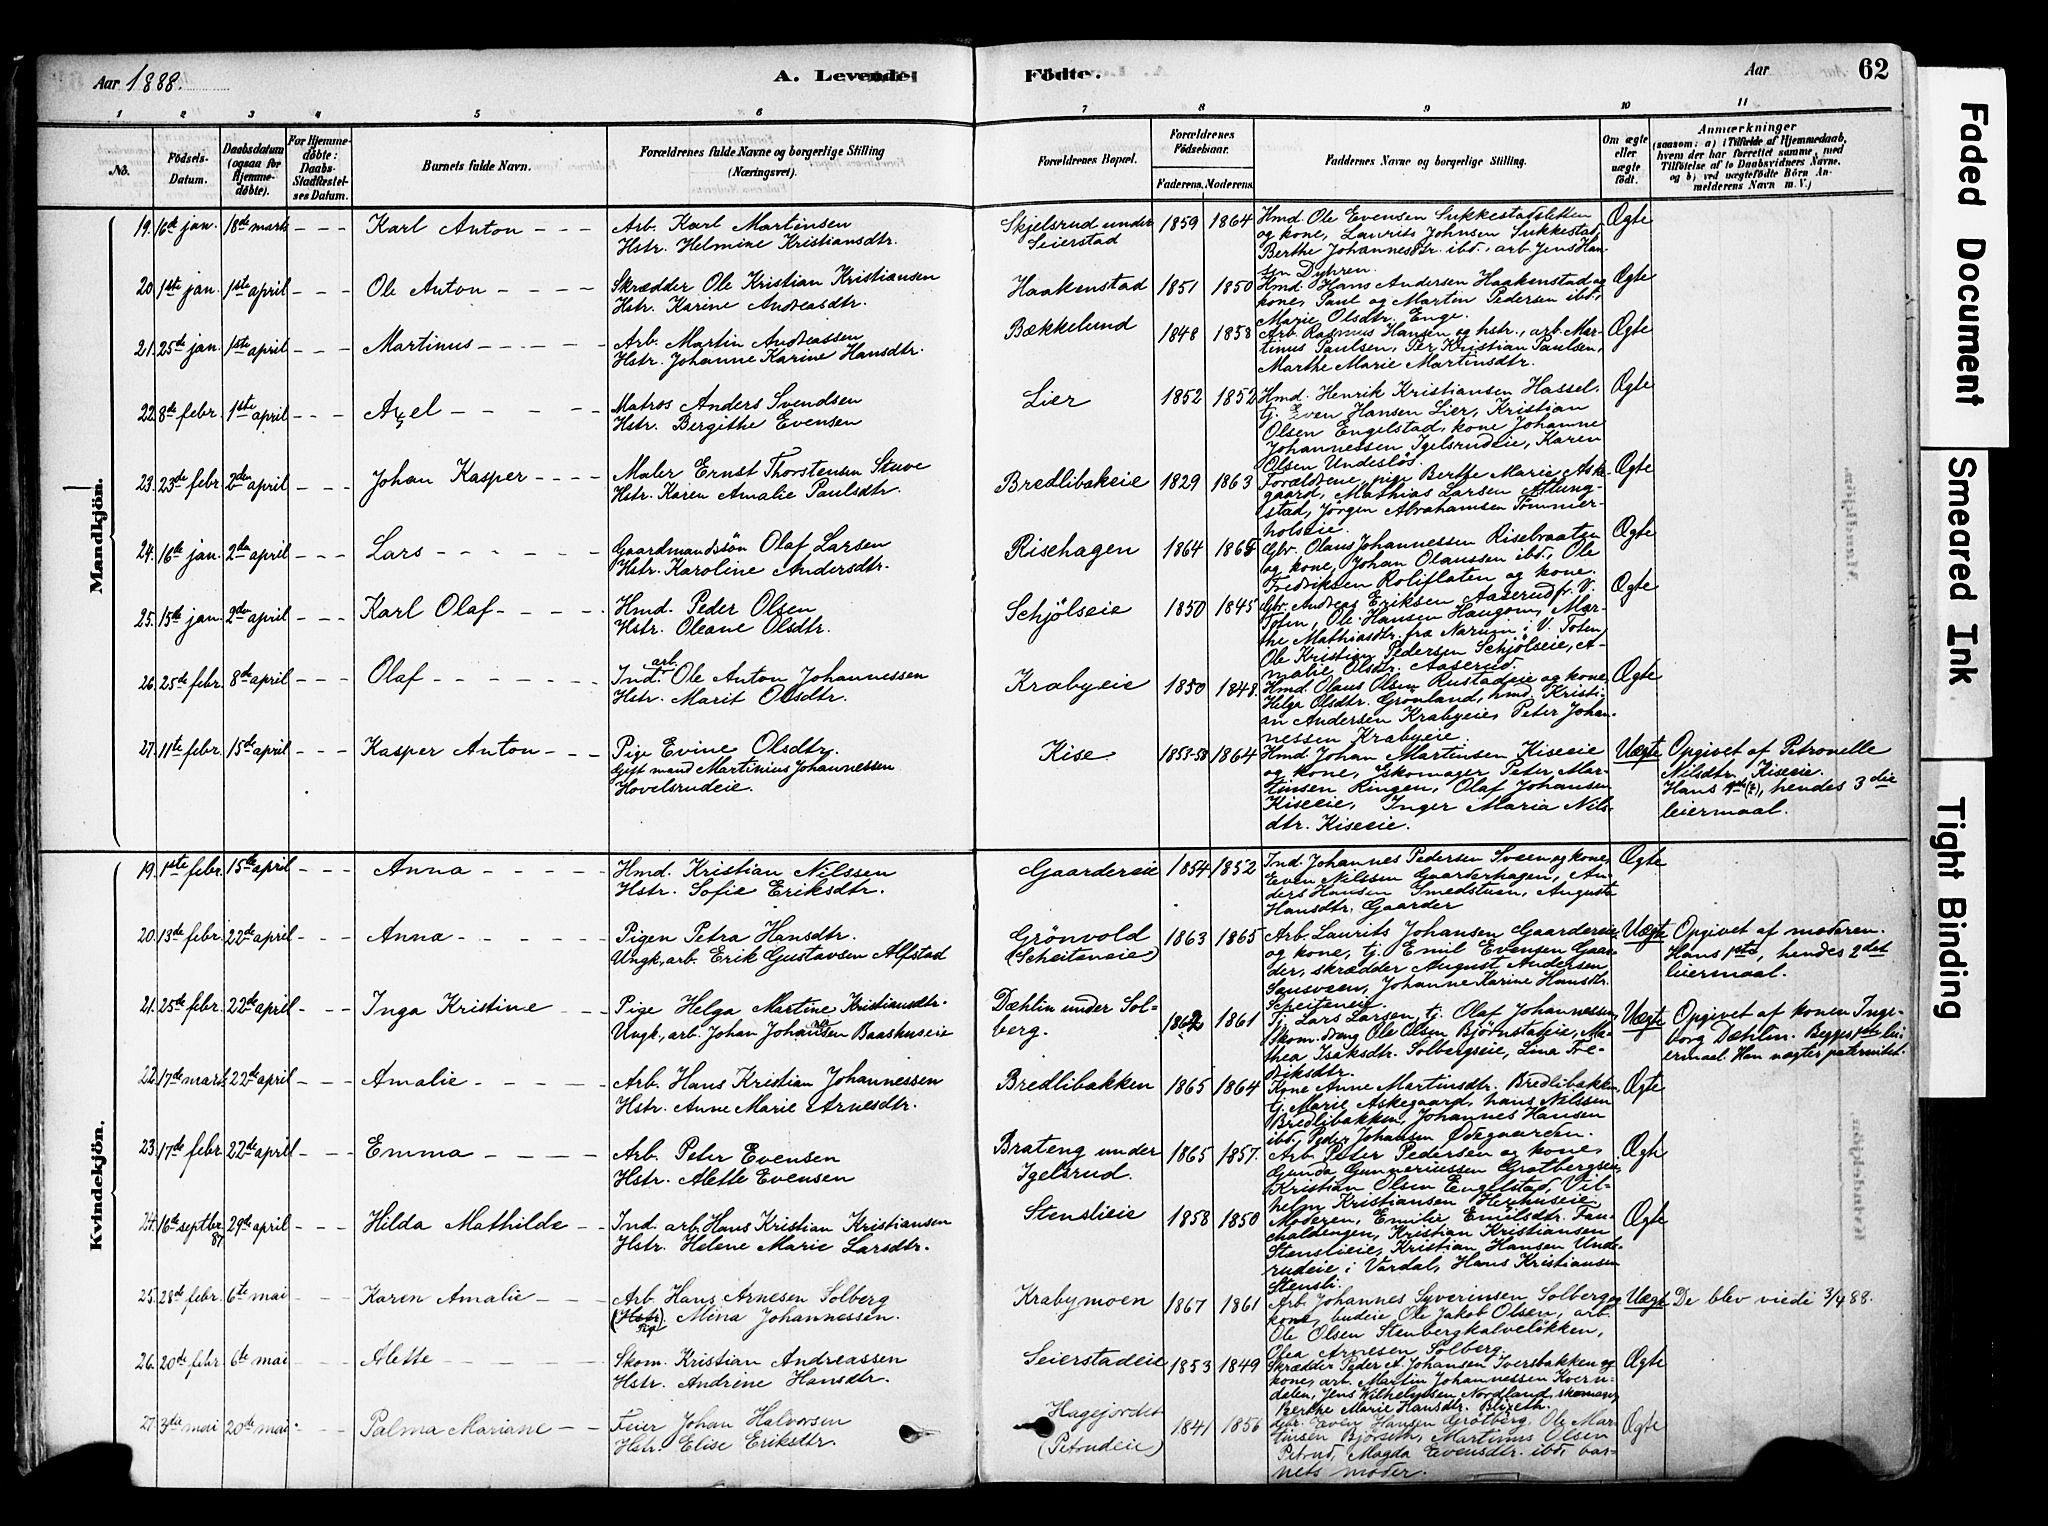 Aar 1888.
A. Levende
Födte.
Aar
62
1 2 3 4 5 6 7 8 9 10 11
No.
Födsels-Datum.
Daabsdatum (ogsaa for Hjemmedöbte).
For Hjemmedöbte: Daabs-Stadfæstelses Datum.
Barnets fulde Navn.
Forældrenes fulde Navne og borgerlige Stilling (Næringsvei).
Forældrenes Bopæl.
Forældrenes Födselsaar.
Faderens. Moderens.
Faddernes Navne og borgerlige Stilling.
Om ægte eller uægte födt.
Anmærkninger
(saasom: a) i Tilfælde af Hjemmedaab, hvem der har forrettet samme, med Tilföielse af to Daabsvidners Navne. og b) ved uægtefödte Börn Anmelderens Navn m. V.)
Mandkjön.
19. 16de jan. 18de marts - - - Karl Anton - - -
Arb. Karl Martinsen
Hstr. Helmine Kristiansdtr.
Skjelsrud under
Seierstad
1859 1864
Hmd. Ole Evensen Sukkestadsletten
og kone, Laurits Johnsen Sukkestad,
Berthe Johannesdtr. ibd., arb. Jens Han-
sen Dyhren.
Ægte
20. 1ste jan. 1ste april - - - Ole Anton - - - -
Skrædder Ole Kristian Kristiansen
Hstr. Karine Andreasdtr.
Haakenstad
1851 1850
Hmd. Hans Andersen Haakenstad og
kone, Paul og Martin Pedersen ibd.,
Marie Olsdtr. Enge.
Ægte
21. 25de jan. 1ste april - - - Martinus - - - - -
Arb. Martin Andreassen
Hstr. Johanne Karine Hansdtr.
Bækkelund
1848 1858
Arb. Rasmus Hansen og hstr., arb. Mar-
tinus Paulsen, Per Kristian Paulsen,
Marthe Marie Martinsdtr.
Ægte
22. 8de febr. 1ste april - - - Axel - - - - -
Matros Anders Svendsen
Hstr. Bergithe Evensen
Lier
1852 1852
Hmd. Henrik Kristiansen Hassel,
tj. Even Hansen Lier, Kristian
Olsen Engelstad, kone Johanne
Johannessen Igelsrudeie, Karen
Olsen Undeslös.
Ægte
23. 23de febr. 2den april - - - Johan Kasper - - - -
Maler Ernst Thorstensen Stuve
Hstr. Karen Amalie Paulsdtr.
Bredlibakeie
1829 1863
Forældrene, pige Berthe Marie Aske-
gaard, Mathias Larsen Allung-
stad, Jörgen Abrahamsen Tömmer-
holseie.
Ægte
24. 16de jan. 2den april - - - Lars - - - - -
Gaardmandssön Olaf Larsen
Hstr. Karoline Andersdtr.
Risehagen
1864 1865
Gbr. Olaus Johannessen Risebraaten
og kone, Johan Olaussen ibd., Ole
Fredriksen Roliflaten og kone.
Ægte
25. 15de jan. 2den april - - - Karl Olaf - - - -
Hmd. Peder Olsen
Hstr. Oleane Olsdtr.
Schjölseie
1850 1845
Gbr. Andreas Eriksen Aaserud fr. V.
Toten, Ole Hansen Haugom, Mar-
the Mathiasdtr. fra Narum i V. Toten,
Ole Kristian Pedersen Schjölseie, A-
malie Olsdtr. Aaserud.
Ægte
26. 25de febr. 8de april - - - Olaf - - - - - -
Ind. arb. Ole Anton Johannessen
Hstr. Marit Olsdtr.
Krabyeie
1850 1848.
Hmd. Olaus Olsen Rustadeie og kone,
Helga Olsdtr. Grönland, hmd. Kristi-
an Andersen Krabyeie, Peter Johan-
nessen Krabyeie.
Ægte
27. 11te febr. 15de april - - - Kasper Anton - - -
Pige Evine Olsdtr.
Gift mand Martinius Johannessen
Hovelsrudeie.
Kise
1853-58 1864
Hmd. Johan Martinsen Kiseeie
og kone, skomager Peter Mar-
tinsen Ringen, Olaf Johansen
Kiseeie, Inger Maria Nils-
dtr. Kiseeie.
Uægte
Opgivet af Petronelle
Nilsdtr. Kiseeie.
Hans 4de (?), hendes 3die
leiermaal.
Kvindekjön.
19. 1ste febr. 15de april - - - Anna - - - - -
Hmd. Kristian Nilssen
Hstr. Sofie Eriksdtr.
Gaardereie
1854 1852
Ind. Johannes Pedersen Sveen og kone,
Even Nilssen Gaarderhagen, An-
ders Hansen Smedstuen, Auguste
Hansdtr. Gaarder
Ægte
20. 13de febr. 22de april - - - Anna - - - - -
Pigen Petra Hansdtr.
Ungk., arb. Erik Gustavsen Alfstad
Grönvold
(Scheiteneie)
1863 1865
Arb. Laurits Johansen Gaardereie
og kone, tj. Emil Evensen Gaar-
der, skrædder August Andersen
Sansveen, Johanne Karine Hansdtr.
Scheiteneie.
Uægte
Opgivet af moderen.
Hans 1ste, hendes 2det
leiermaal.
21. 25de febr. 22de april - - - Inga Kristine - - -
Pige Helga Martine Kristiansdtr.
Ungk., arb. Johan Johannessen Baashuseie
Dæhlin under Sol-
berg.
1862 1861
Tj. Lars Larsen, tj. Olaf Johannessen,
skom. dreng Ole Olsen Björnstadeie, Ma-
thea Isaksdtr. Solbergseie, Lina Fre-
driksdtr.
Uægte
Opgivet af konen Inge-
borg Dæhlin. Begges 1ste lei-
ermaal. Han nægter paternitet.
22. 17de mars. 22de april - - - Amalie - - - -
Arb. Hans Kristian Johannessen
Hstr. Anne Marie Arnesdtr.
Bredlibakken
1865 1864
Kone Anne Martinsdtr. Bredlibakken,
tj. Marie Askegaard, hans Nilssen
Bredlibakken, Johannes Hansen
ibd., Peder Johansen Ödegaarden.
Ægte
23. 17de febr. 22de april - - - Emma - - - -
Arb. Peter Evensen
Hstr. Alette Evensen
Brateng under
Igelsrud.
1865 1857.
Arb. Peter Pedersen og kone,
Gunda Gunneriussen Grötbergseie,
Kristian Olsen Engelstad, Vil-
helm Kristiansen Herhuseie.
Ægte
24. 16de septbr. 87 29de april - - - Hilda Mathilde - -
Ind. arb. Hans Kristian Kristiansen
Hstr. Helene Marie Larsdtr.
Stenslieie
1858 1850
Moderen, Emilie Emilsdtr. Fau-
chaldengen, Kristian Kristiansen
Stenslieie, Kristian Hansen Unde-
rudeie i Vardal, Hans Kristiansen
Stensli.
Ægte
25. 28de febr. 6te mai - - - Karen Amalie - - -
Arb. Hans Arnesen Solberg
(Hstr.) Pige Mina Johannessen.
Krabymoen
1867 1861
Arb. Johannes Syverinsen Solberg og
kone, budeie Ole Jakob Olsen, arb.
Ole Olsen Stenbergkalvelökken,
Olea Arnesen Solberg.
Uægte
De blev viede 3/4 88.
26. 20de febr. 6te mai - - - Alette - - - - -
Skom. Kristian Andreassen
Hstr. Andrine Hansdtr.
Seierstadeie
1853 1849
Skrædder Peder A. Johansen Iversbakken og
kone, arb. Martin Johannessen Kvern-
dalen, Jens Wilhelmsen Nordland, skomager,
Berthe Marie Hansdtr. Blixeth.
Ægte
27. 3die mai 20de mai - - - Palma Mariane - -
Feier Johan Halvorsen
Hstr. Elise Eriksdtr.
Hagejordet
(Petrudeie)
1841 1856
Gbr. Even Hansen Grötberg, Ole Mar-
tinsen Björseth, Martinus Olsen
Petrud, Magda Evensdtr. ibd., bar-
nets moder.
Ægte
Faded Document
Smeared Ink
Tight Binding